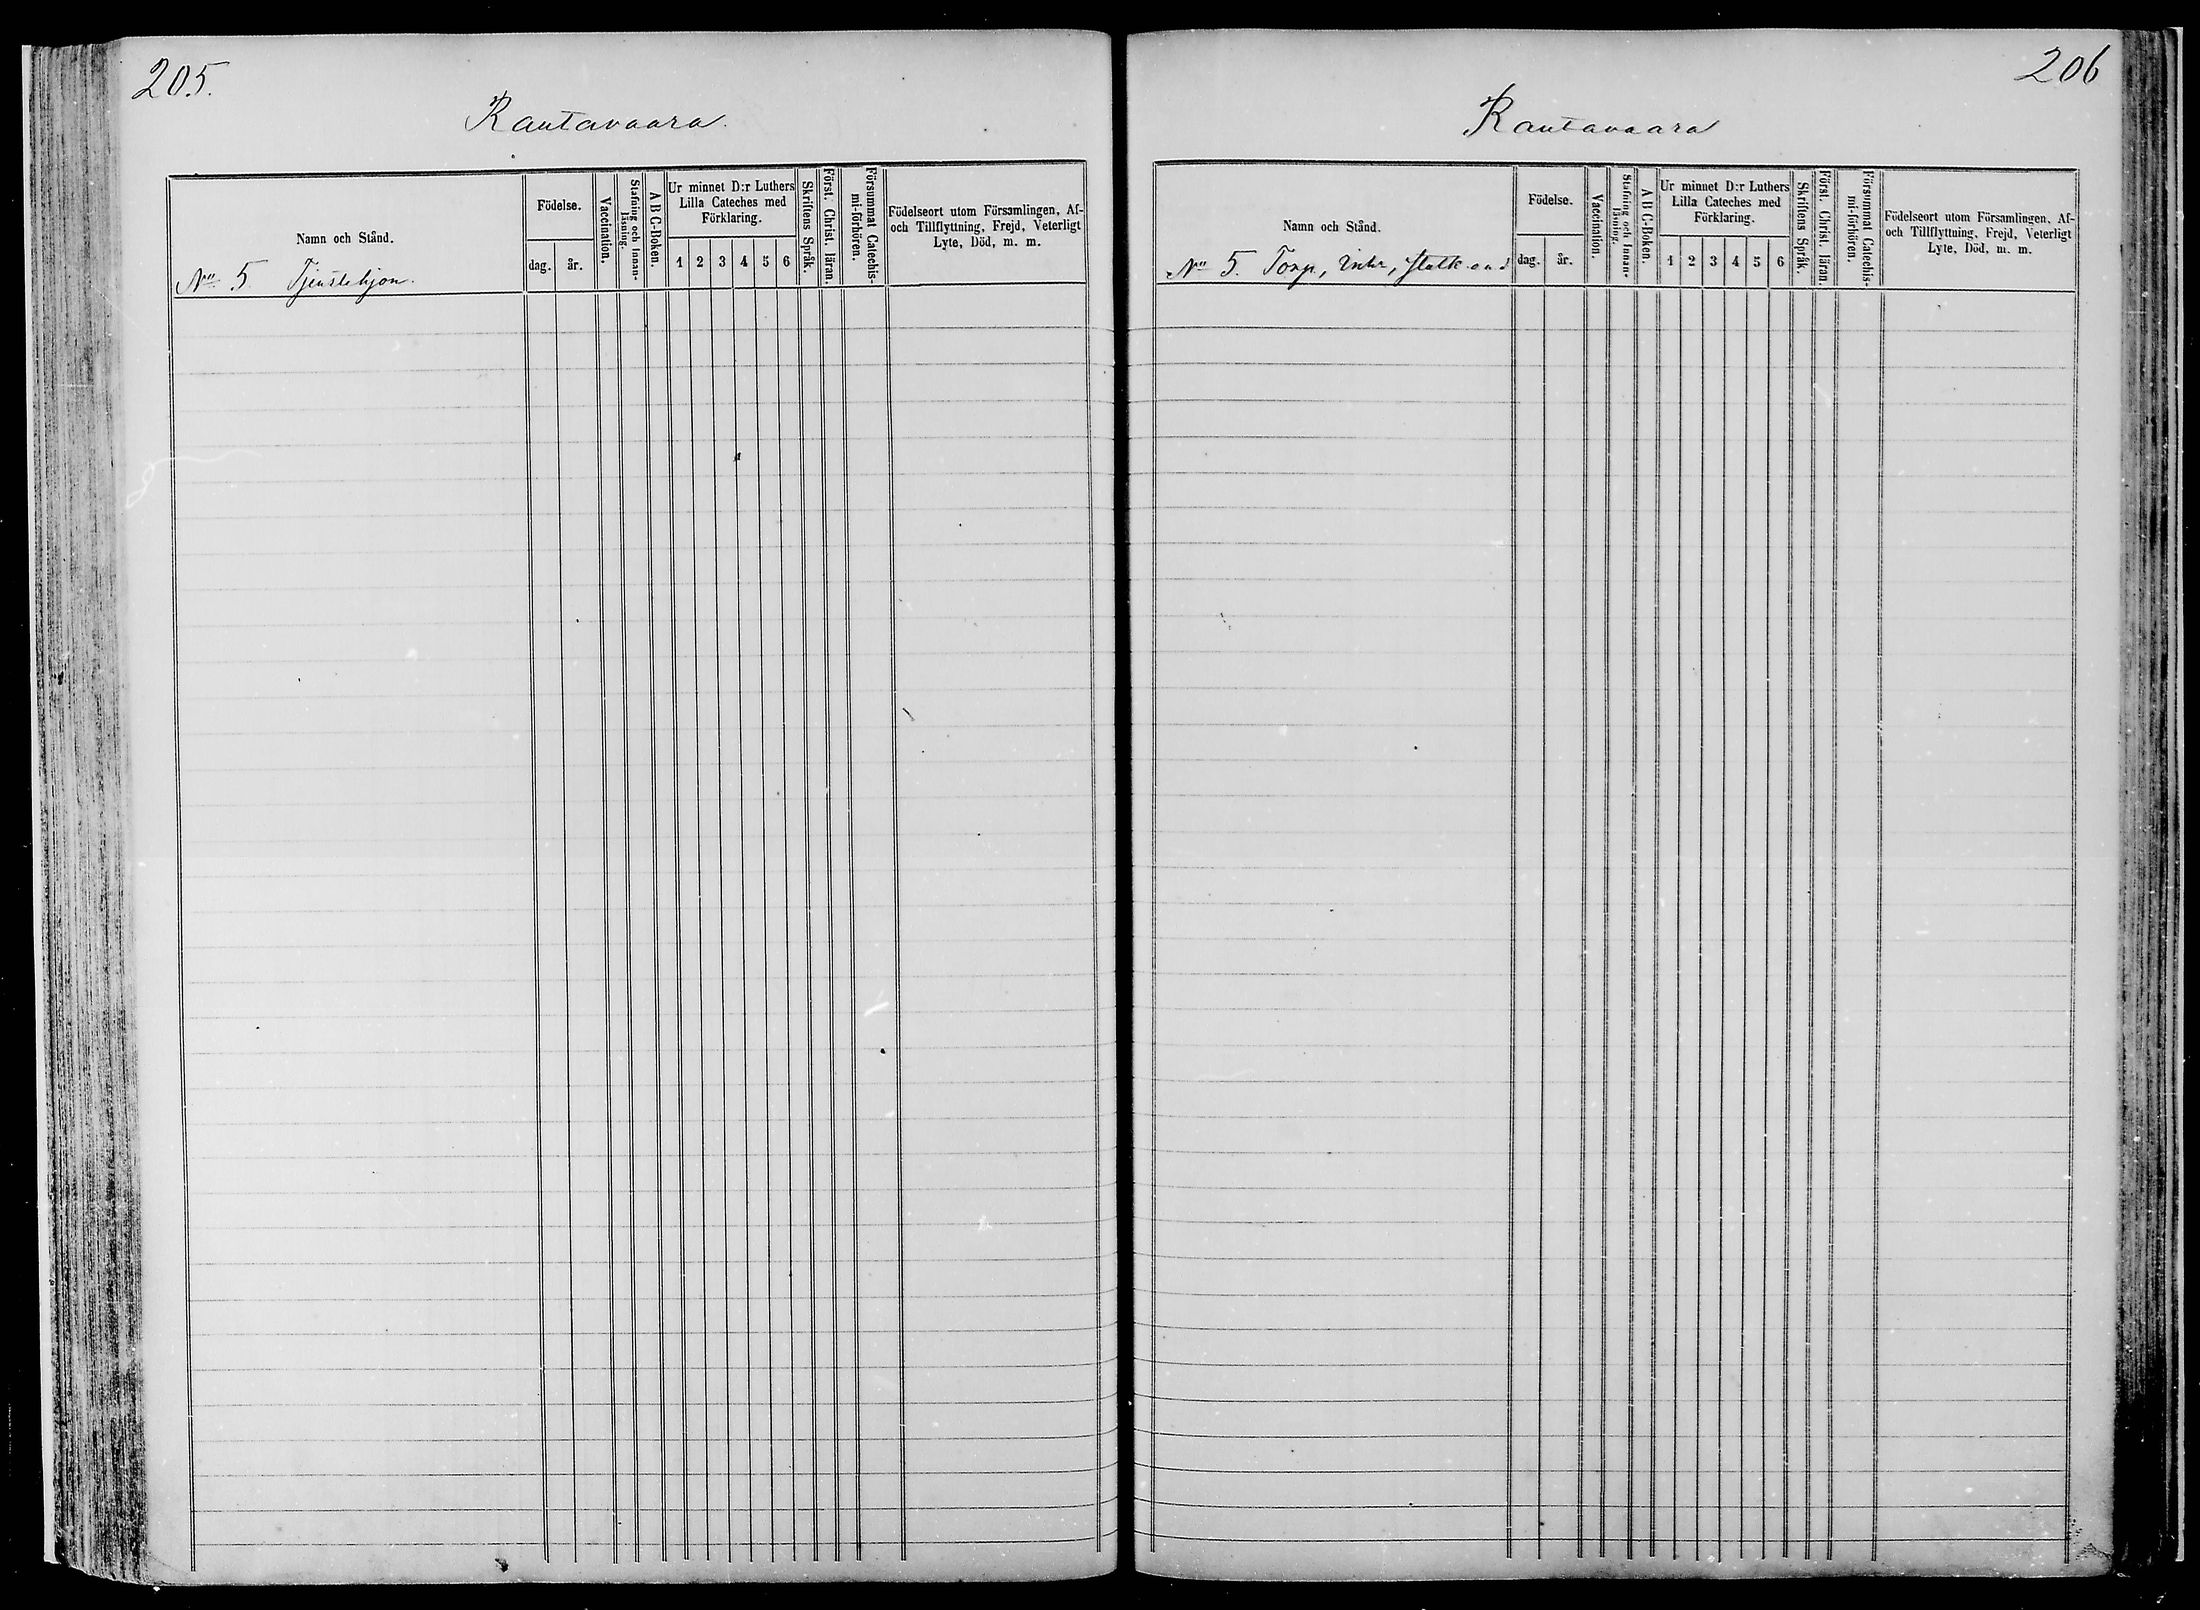 205.
Rautavaara.
Namn och Stånd.
No 5 Tjenstehjon.
Födelse.
dag. år.
Vaccination.
Stafning och Innan-
läsning.
A B C-Boken.
Ur minnet D:r Luthers
Lilla Cateches med
Förklaring.
1 2 3 4 5 6
Skriftens Språk.
Först. Christ. läran.
Försummat Catechis-
mi-förhören.
Födelseort utom Församlingen, Af-
och Tillflyttning, Frejd, Veterligt
Lyte, Död, m. m.
206
Rautavaara
Namn och Stånd.
No 5. Torp, Inh,
Födelse.
dag. år.
Vaccination.
Stafning och Innan-
läsning.
A B C-Boken.
Ur minnet D:r Luthers
Lilla Cateches med
Förklaring.
1 2 3 4 5 6
Skriftens Språk.
Först. Christ. läran.
Försummat Catechis-
mi-förhören.
Födelseort utom Församlingen, Af-
och Tillflyttning, Frejd, Veterligt
Lyte, Död, m. m.